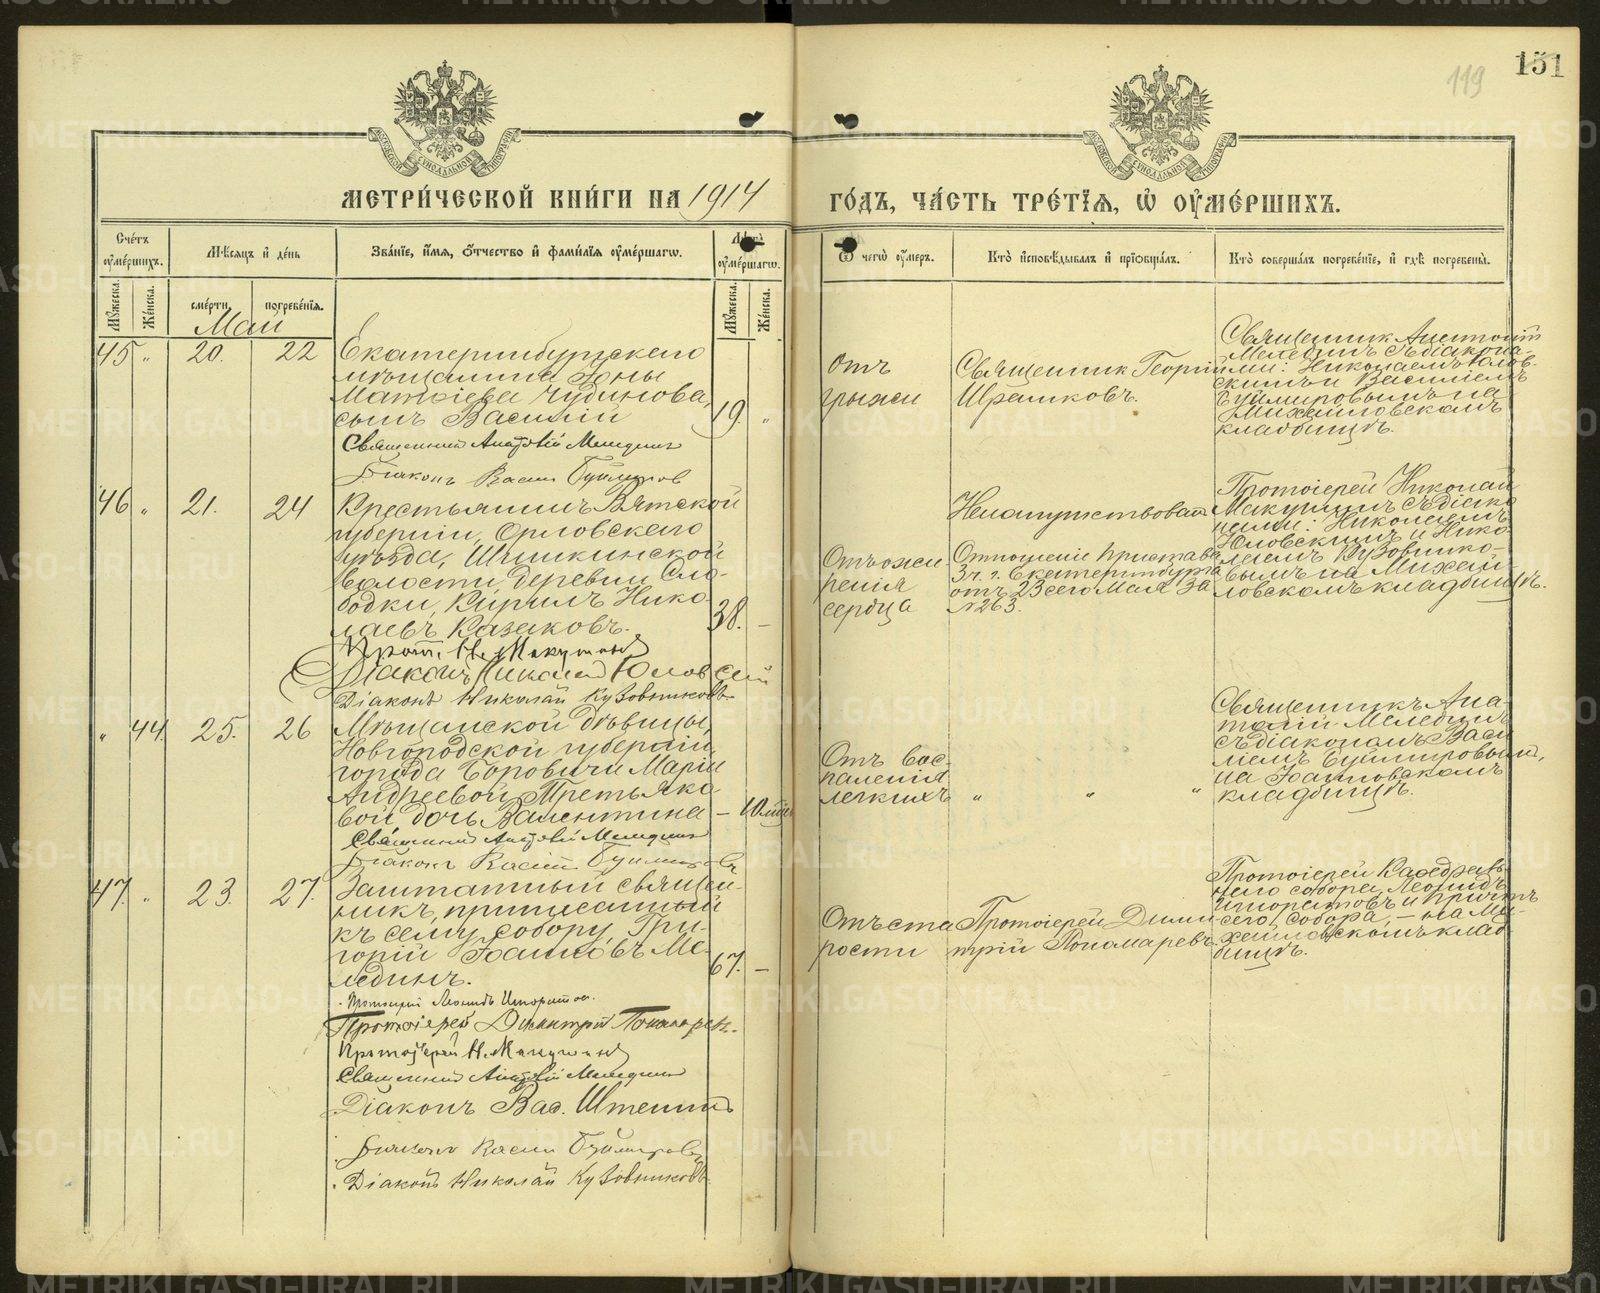 119
151
МЕТРИ́ЧЕСКОЙ КНИ́ГИ НА 1914
ГО́ДЪ, ЧА́СТЬ ТРЕ́ТІѦ, Ѡ ОУМЕ́РШИХЪ.
Сче́тъ оуме́ршихъ.
Мѣ́сяцъ и де́нь
Зва́ніе, и́мя, о́тчество и фами́лія оуме́ршагѡ.
Лѣ́та оуме́ршагѡ.
Ѿ чегѡ̀ оу́меръ.
Кто̀ исповѣ́дывалъ и прїѡбща́лъ.
Кто̀ соверша́лъ погребе́ніе, и гдѣ̀ погребены̀.
Му́жеска.
Же́нска.
сме́рти.
погребе́нія.
Му́жеска.
Же́нска.
Май
45 „ 20. 22
Екатеринбургскаго
мѣщанина Іоны
Матвіева Чудинова,
сынъ Василій
19. „
Священникъ Анатолій Меледин
Діаконъ Васил Буймиров
отъ
грыжи
Священникъ Георгій
Ирашковъ.
Священник Анатолій
Мелединъ съ діакона-
ми: Николаемъ Юлов-
скимъ и Василіемъ
Буймировымъ на
Михайловскомъ
кладбищѣ.
46 „ 21. 24
Крестьянинъ Вятской
губерніи, Орловскаго
уѣзда, Шишкинской
волости, деревни Сло-
бодки, Кирилъ Нико-
лаевъ Казаковъ.
38. –
Прот. Н. Макушин
Діаконъ Николай Юловскій
Діаконъ Николай Кузовниковъ
Отъ ожи-
ренія
сердца
Ненапутствован
Отношеніе пристава
3 ч. г. Екатеринбурга
отъ 23 сего Мая за
№ 263.
Протоіерей Николай
Макушинъ съ діако-
нами: Николаемъ
Юловскимъ и Нико-
лаемъ Кузовнико-
вымъ на Михай-
ловскомъ кладбищѣ.
„ 44. 25. 26
Мѣщанской дѣвицы,
Новгородской губерніи,
города Боровичи Маріи
Андреевой Третьяко-
вой дочь Валентина
–
Священникъ Анатолій Меледин
Діаконъ Васил Буймировъ
Отъ вос-
паленія
легкихъ
„ „ „
Священникъ Ана-
толій Мелединъ
съ діакономъ Васи-
ліемъ Буймировымъ,
на Іоанновскомъ
кладбищѣ.
47. „ 23. 27.
Заштатный священ-
никъ, приписанный
къ сему собору Гри-
горій Іоанновъ Ме-
лединъ.
67. –
Протоіерей Леонидъ Игноратов.
Протоіерей Димитрій Пономарев.
Протоіерей Н. Макушин
Священникъ Анатолій Меледин
Діаконъ Вас. Штенинъ
Діаконъ Васил Буймировъ
Діаконъ Николай Кузовниковъ
Отъ ста-
рости
Протоіерей Дими-
трій Пономаревъ.
Протоіерей Каѳедраль-
наго собора Леонидъ
Игноратовъ и причтъ
сего собора, – на Ми-
хайловскомъ клад-
бищѣ.